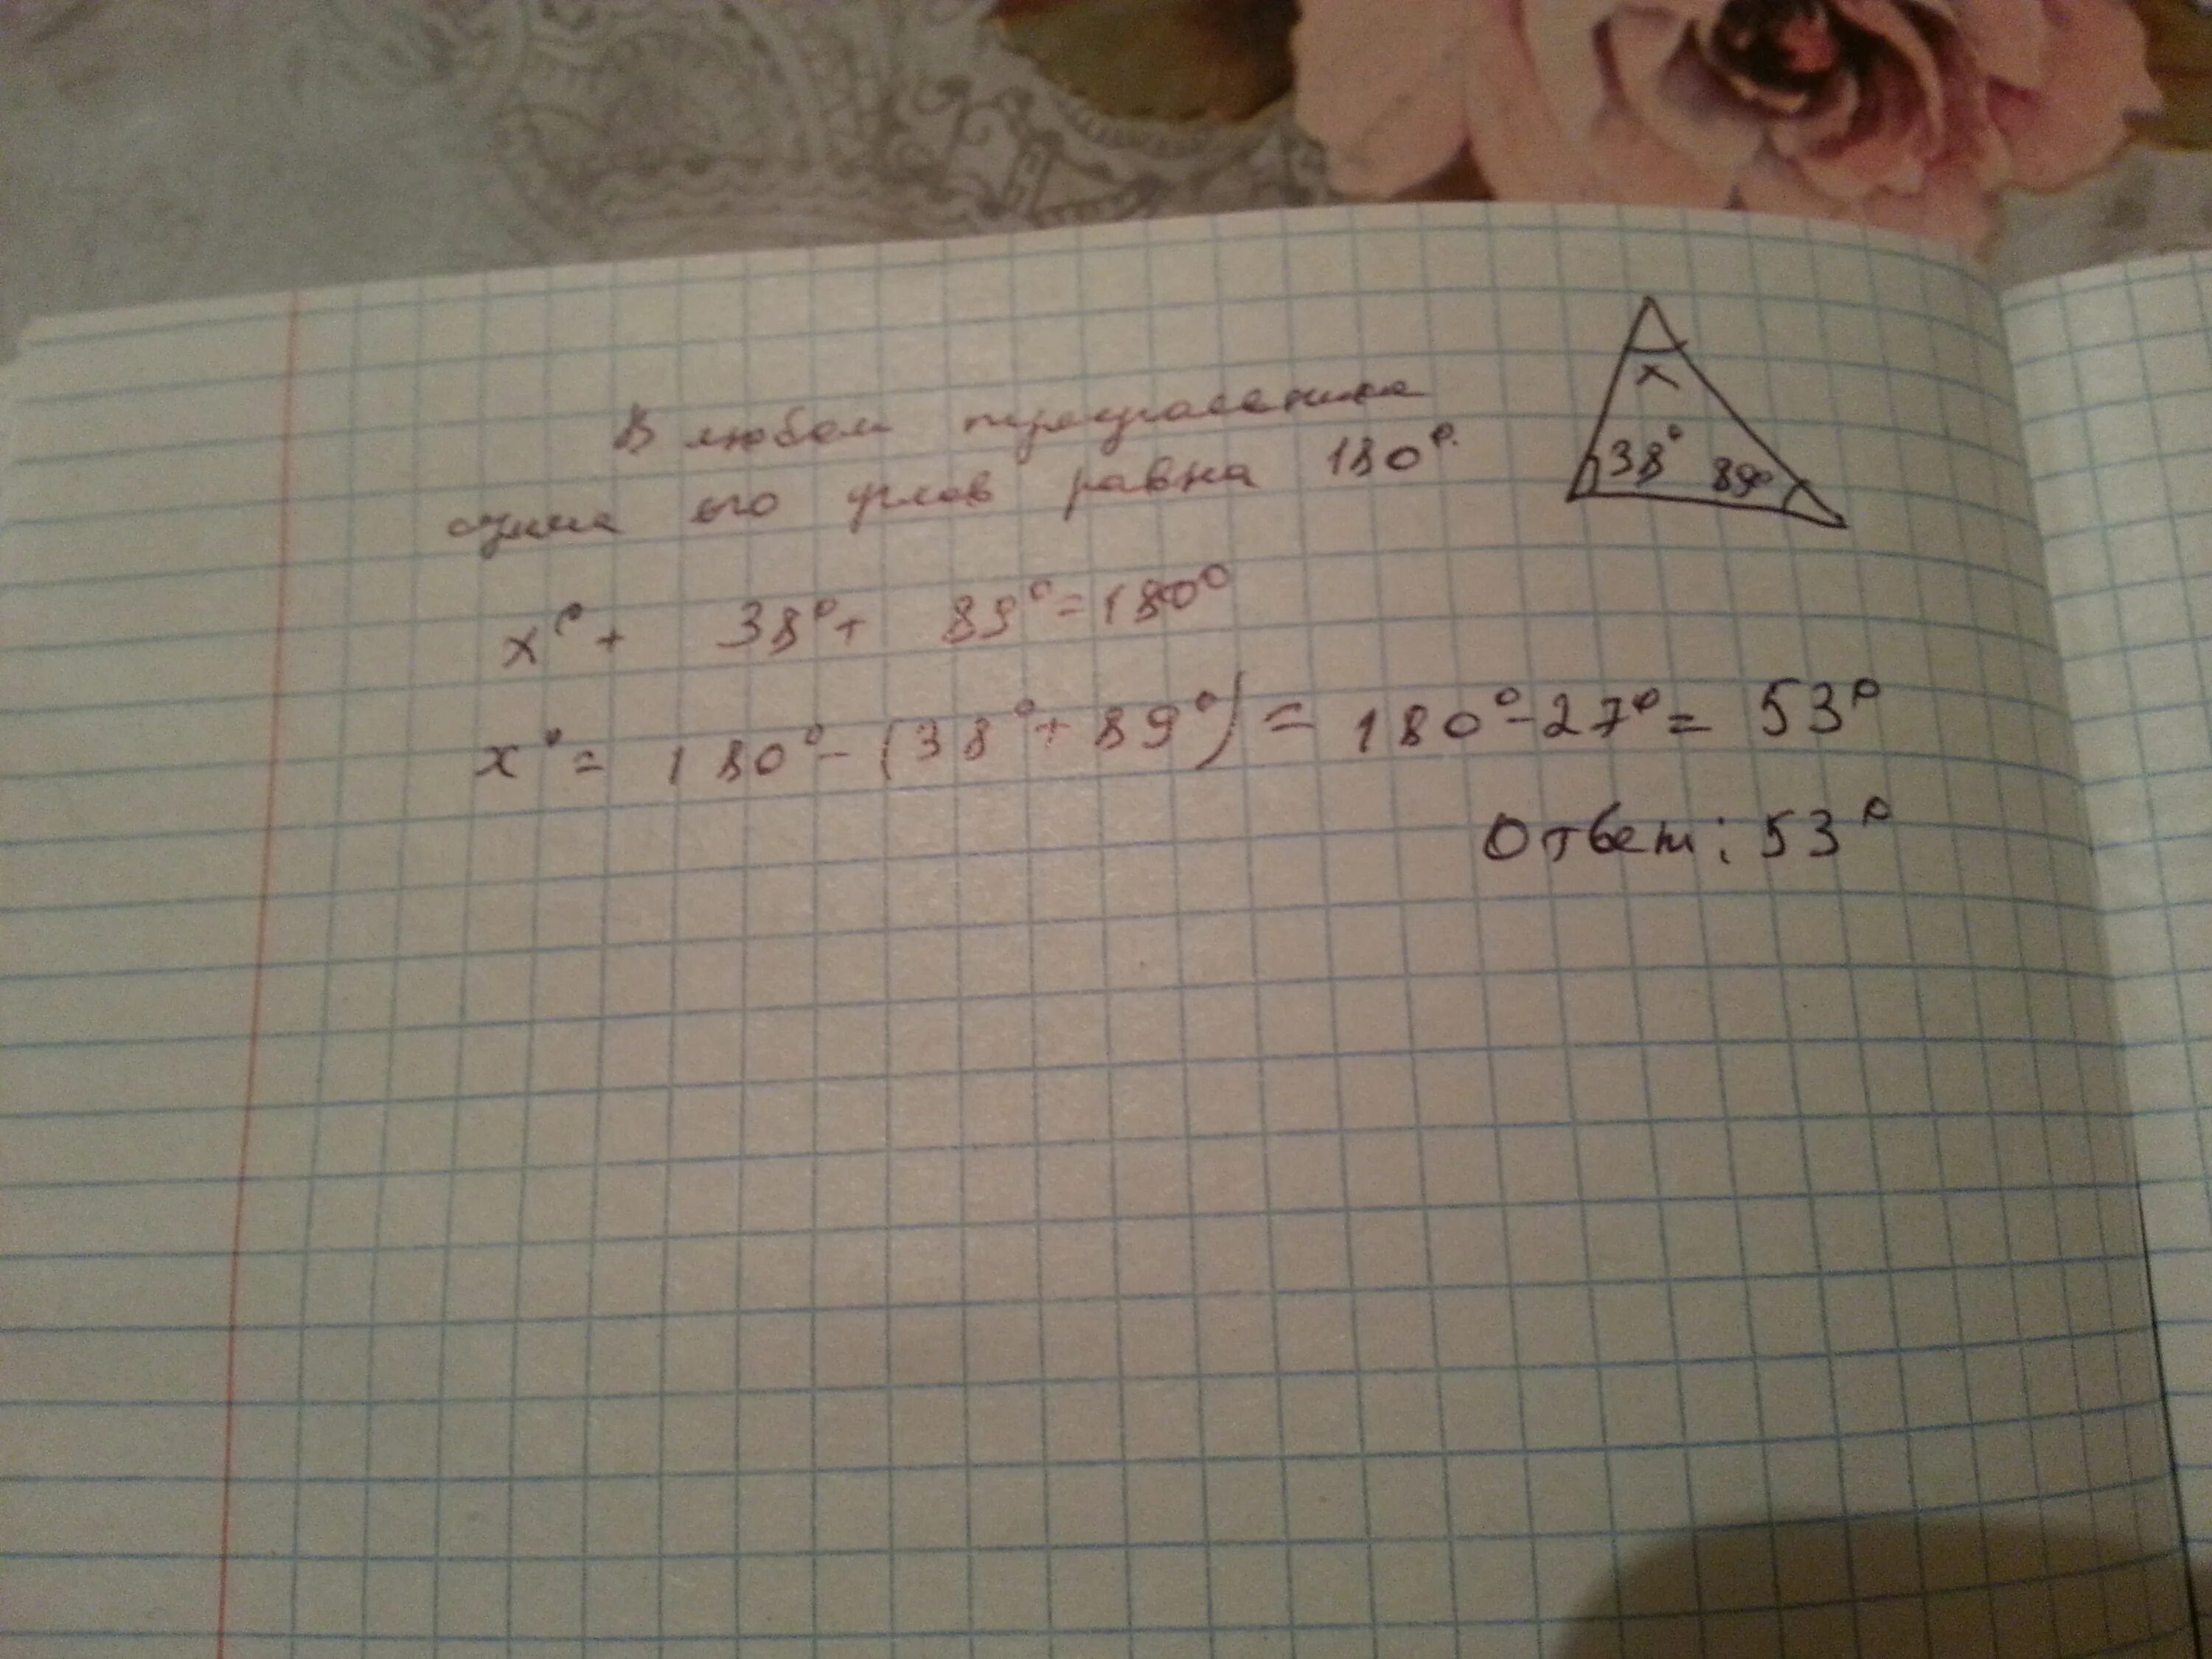 В любом треугольнике
сумма его углов равна 180°.
x
38° 89°
x° + 38° + 89° = 180°
x° = 180° - (38° + 89°) = 180° - 27° = 53°
Ответ: 53°